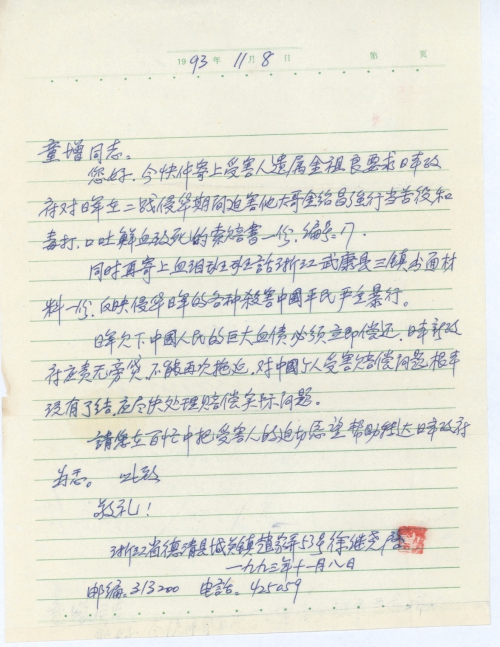 1993年11月8日 第 页
童增同志。
您好。今快件寄上受害人遗属金祖良要求日本政
府对日军在二战侵华期间迫害他大哥金给昌强行当苦役和
毒打,口吐鲜血致死的索赔书一份,编号:17。
同时再寄上血泪斑斑话浙江武康县三镇书面材
料一份,反映侵华日军的各种杀害中國平民严重暴行。
日军欠下中國人民的巨大血债必须立即偿还,日本新政
府应责无旁贷,不能再次拖延,对中國个人受害赔偿问题根本
没有了结,应尽快处理赔偿实际问题。
請您在百忙中把受害人的迫切愿望帮助转达日本政府
为念。 此致
敬礼!
浙江省德清县城关镇趙家弄53号徐继尧
一九九三年十一月八日
邮编:313200 电話:425059